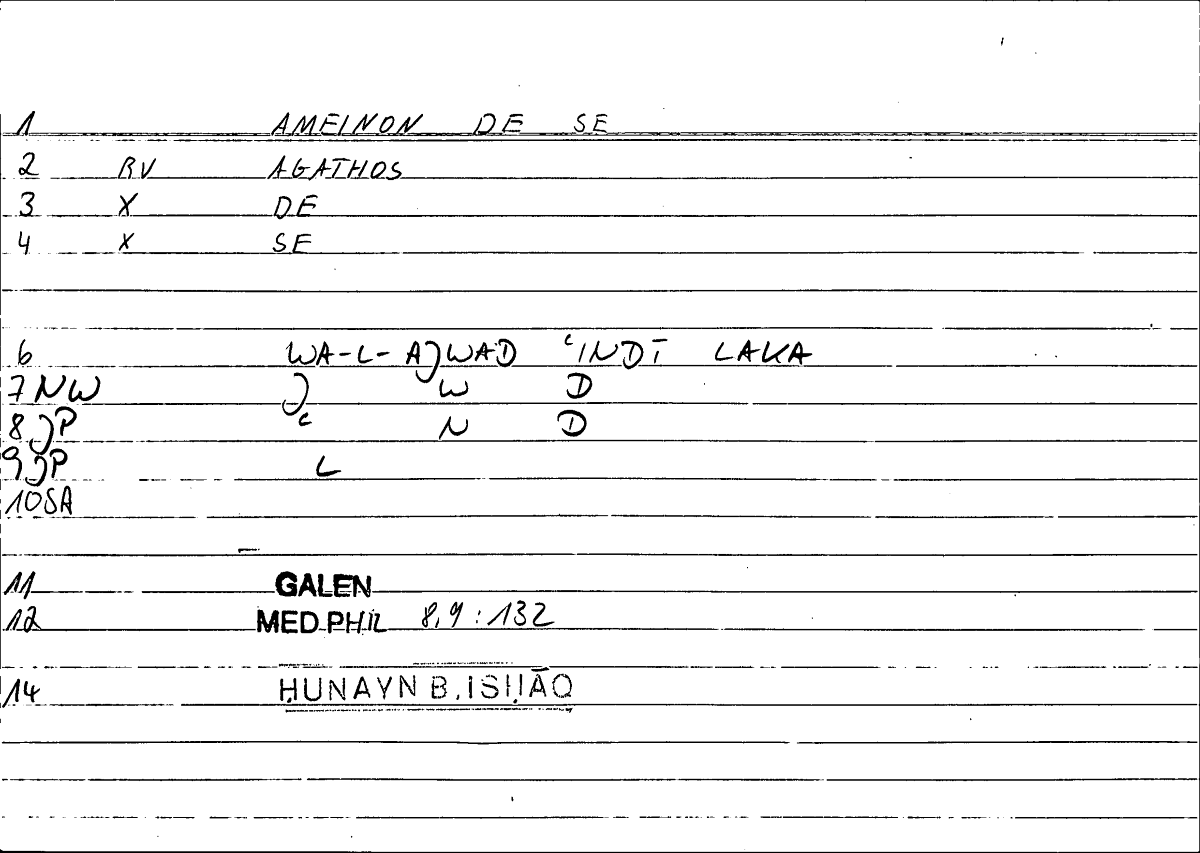 1 AMEINON DE SE
2 RV AGATHOS
3 X DE
4 X SE
6 WA-L-AJWAD ʿINDĪ LAKA
7 NW J W D
8 JP ʿ N D
9 JP L
10 SA
11 GALEN
12 MED.PHIL 8,9:132
14 ḤUNAYN B. ISḤĀQ